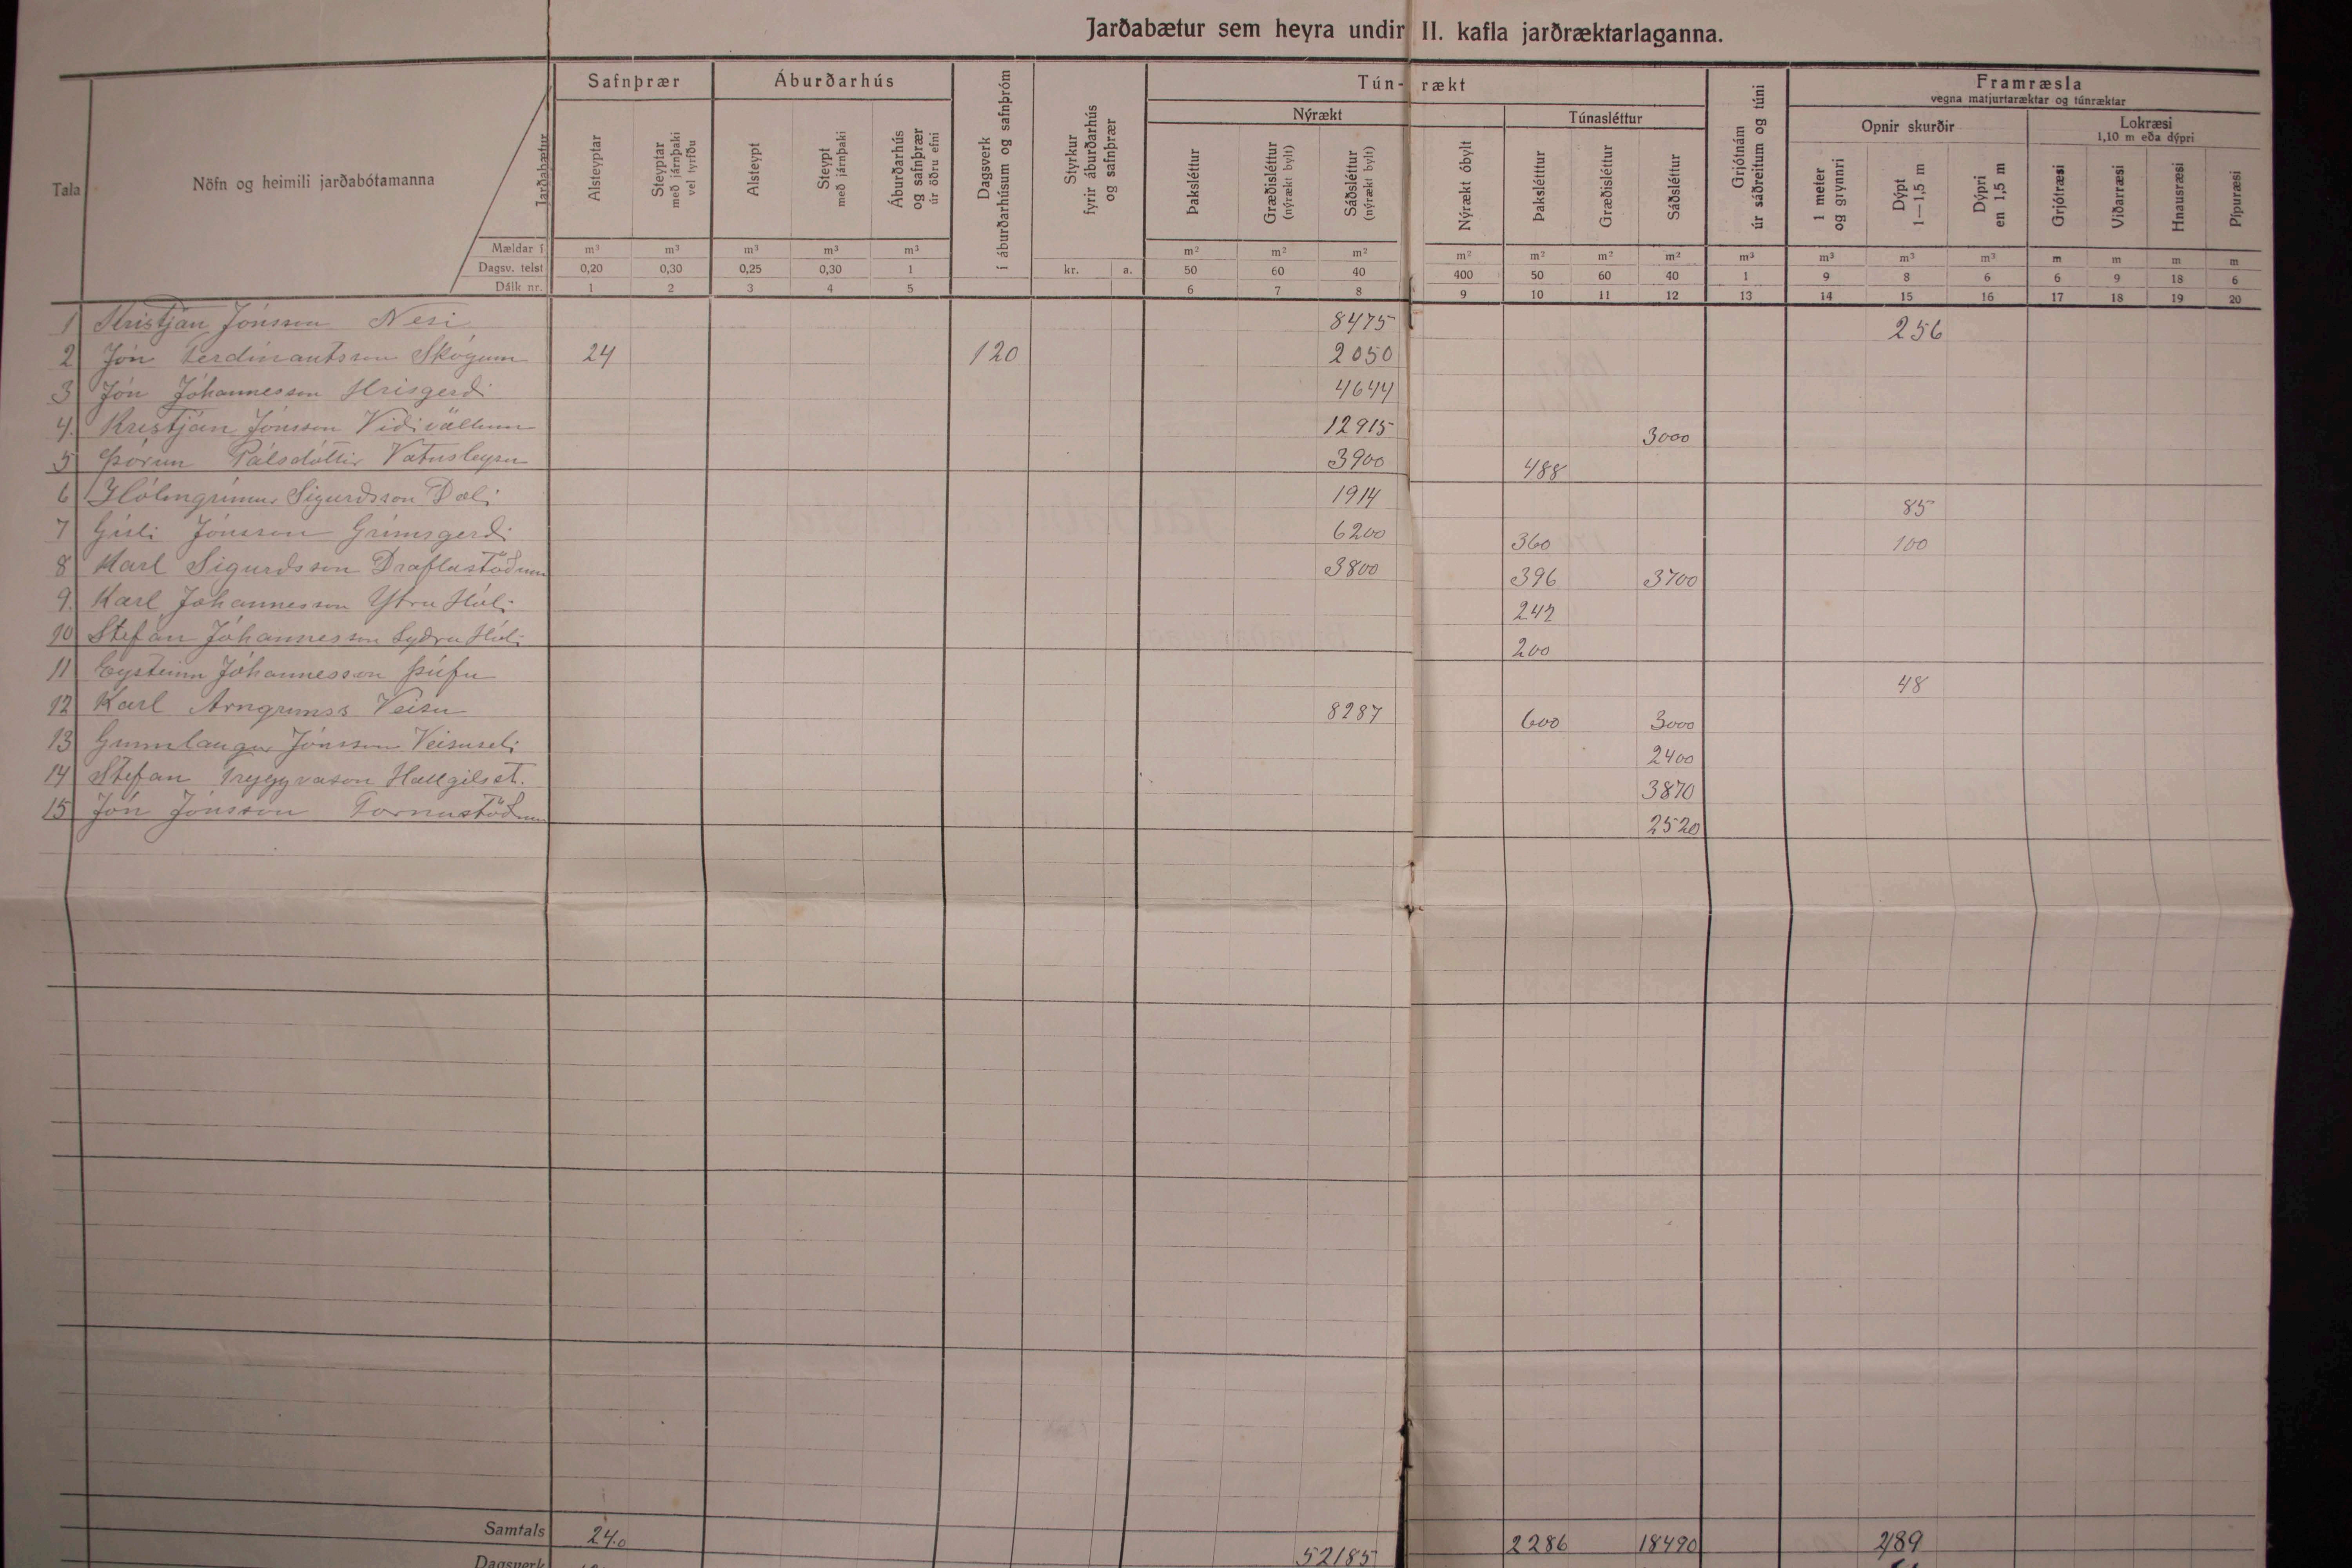 Jarðabætur sem heyra undir II. kafla jarðræktarlaganna.
Tala
Nöfn og heimili jarðabótamanna
Jarðabætur
Mældar í
Dagsv. telst
Dálk nr.
Safnþrær
Alsteyptar m³ 0,20 1
Steyptar með járnþaki vel tyrfðu m³ 0,30 2
Áburðarhús
Alsteypt m³ 0,25 3
Steypt með járnþaki m³ 0,30 4
Áburðarhús og safnþrær úr öðru efni m³ 1 5
Dagsverk í áburðarhúsum og safnþróm
Styrkur fyrir áburðarhús og safnþrær kr. a.
Tún- rækt
Nýrækt
Þaksléttur m² 50 6
Græðisléttur (nýrækt bylt) m² 60 7
Sáðsléttur (nýrækt bylt) m² 40 8
Nýrækt óbylt m² 400 9
Túnasléttur
Þakslétttur m² 50 10
Græðisléttur m² 60 11
Sáðsléttur m² 40 12
Grjótnám úr sáðreitum og túni m³ 1 13
Framræsla
vegna matjurtaræktar og túnræktar
Opnir skurðir
1 meter og grynnri m³ 9 14
Dýpt 1—1,5 m m³ 8 15
Dýpri en 1,5 m m³ 6 16
Lokræsi
1,10 m eða dýpri
Grjótræsi m 6 17
Viðarræsi m 9 18
Hnausræsi m 18 19
Pípuræsi m 6 20
1 Kristján Jónsson Nesi 8475 256
2 Jón Ferdínantsson Skógum 24 120 2050
3 Jón Jóhannesson Hrisgerði 4644
4. Kristján Jónsson Viðivöllum 12915 3000
5 Þórun Pálsdóttir Vatnsleysu 3900 488
6 Hólmgrímur Sigurðsson Dæli 1914 85
7 Gísli Jónsson Grímsgerði 6200 360 100
8 Karl Sigurðsson Draflastöðum 3800 396 3700
9. Karl Jóhannesson Ytra Hóli 242
10 Stefán Jóhannesson Syðra Hóli 200
11 Eysteinn Jóhannesson Þúfu 48
12 Karl Arngrimss Veisu 8287 600 3000
13 Gunnlaugur Jónsson Veisuseli 2400
14 Stefan Tryggvason Hallgilsst. 3870
15 Jón Jónsson Fornastöðum 2520
Samtals 24.0 52185 2286 18490 489
Dagsverk